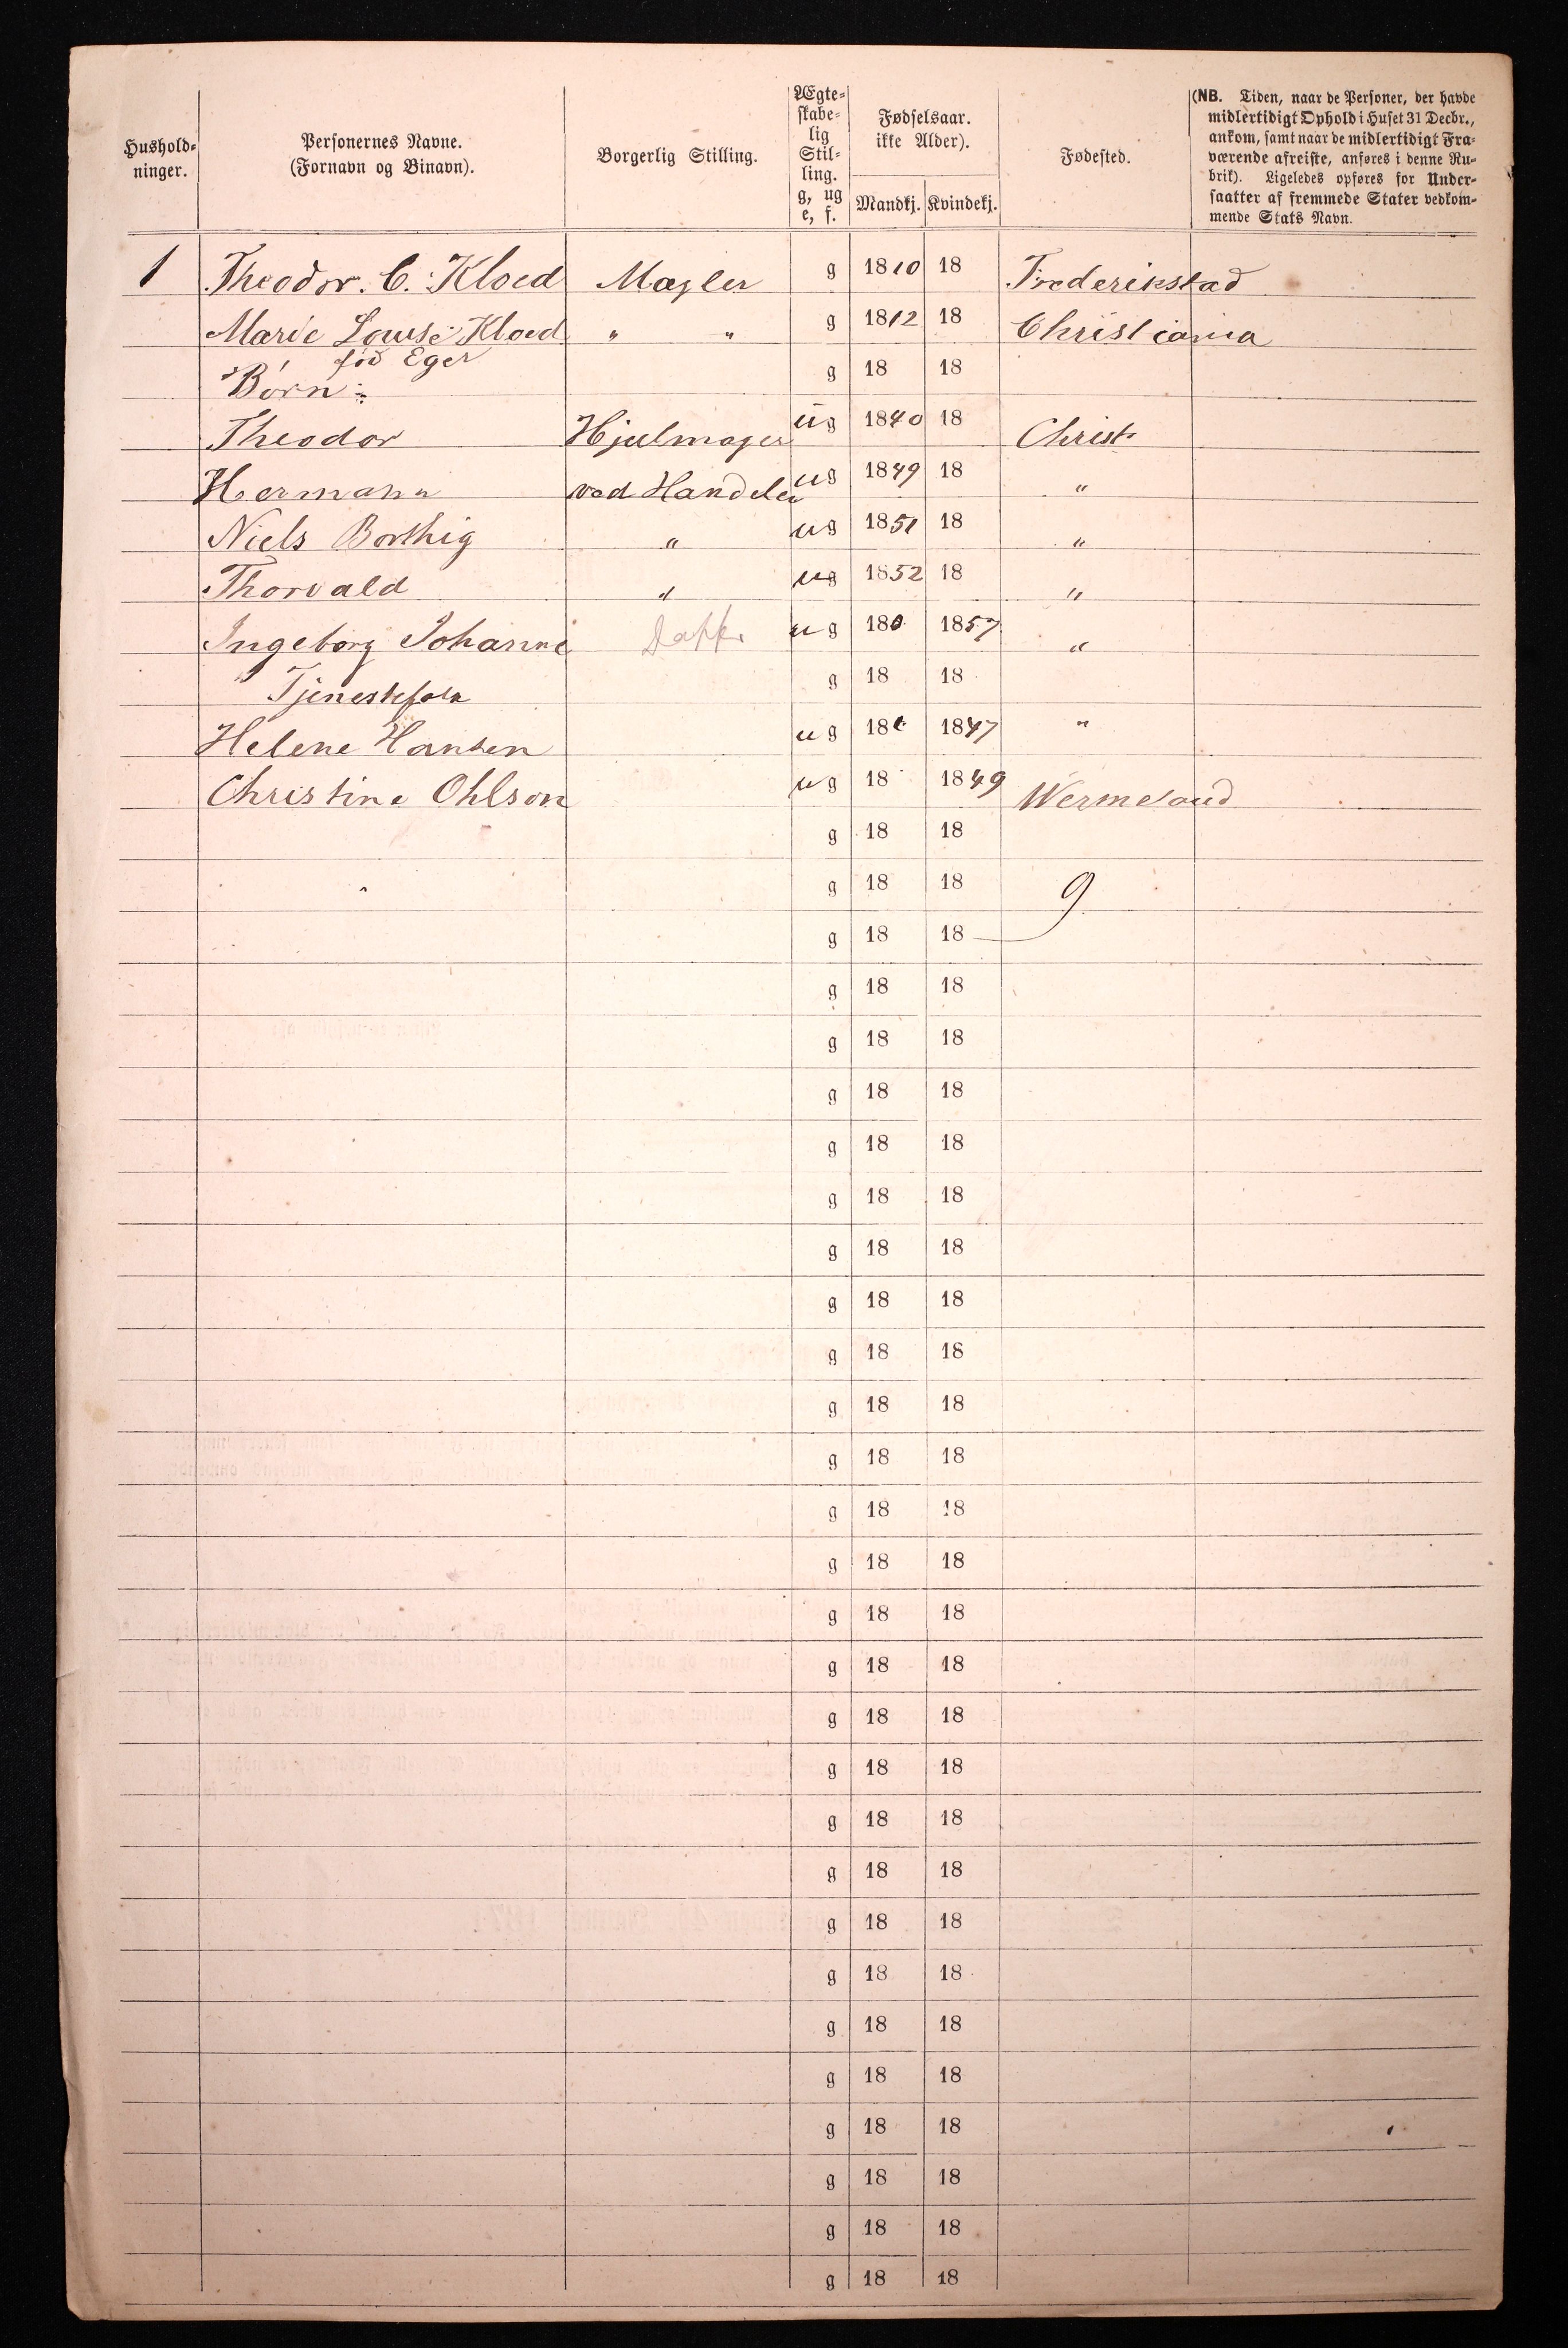 Hushold-
ninger.
Personernes Navne.
(Fornavn og Binavn).
Borgerlig Stilling.
Ægte-
skabe-
lig
Stil-
ling.
g, ug
e, f.
Fødselsaar.
ikke Alder).
Mandkj. Kvindekj.
Fødested.
(NB. Tiden, naar de Personer, der havde
midlertidigt Ophold i Huset 31 Decbr.,
ankom, samt naar de midlertidigt Fra-
værende afreiste, anføres i denne Ru-
brik). Ligeledes opføres for Under-
saatter af fremmede Stater vedkom-
mende Stats Navn.
1 Theodor. C. Kloed Mægler g 1810 18 Frederikstad
Marie Louise Kloed " " g 1812 18 Christiania
fød Eger
Børn: g 18 18
Theodor Hjulmager ug 1840 18 Christ
Hermann ved Handelen ug 1849 18 "
Niels Borthig " ug 1851 18 "
Thorvald " ug 1852 18 "
Ingeborg Johanne ug 18 1857 "
Tjenestefolk g 18 18
Helene Hansen ug 18 1847 "
Christine Ohlson ug 18 1849 Wermeland
g 18 18
g 18 18 9
g 18 18
g 18 18
g 18 18
g 18 18
g 18 18
g 18 18
g 18 18
g 18 18
g 18 18
g 18 18
g 18 18
g 18 18
g 18 18
g 18 18
g 18 18
g 18 18
g 18 18
g 18 18
g 18 18
g 18 18
g 18 18
g 18 18
g 18 18
g 18 18
g 18 18
g 18 18
g 18 18